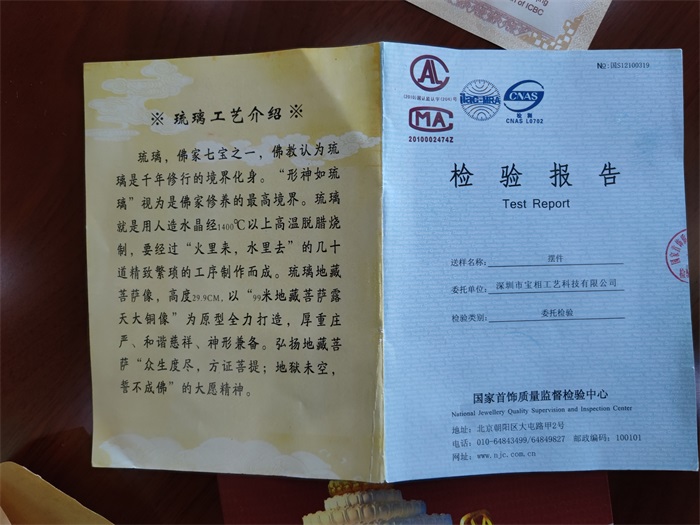 ※ 琉璃工艺介绍 ※
琉璃，佛家七宝之一，佛教认为琉
璃是千年修行的境界化身。“形神如琉
璃”视为是佛家修养的最高境界。琉璃
就是用人造水晶经1400℃以上高温脱腊烧
制，要经过“火里来，水里去”的几十
道精致繁琐的工序制作而成。琉璃地藏
菩萨像，高度29.9CM，以“99米地藏菩萨露
天大铜像”为原型全力打造，厚重庄
严、和谐慈祥、神形兼备。弘扬地藏菩
萨“众生度尽，方证菩提；地狱未空，
誓不成佛”的大愿精神。
of ICBC
№:国S12100319
CAL
ilac-MRA
CNAS
检测
CNAS L0702
MA
2010002474Z
检验报告
Test Report
送样名称： 摆件
委托单位：深圳市宝相工艺科技有限公司
检验类别： 委托检验
国家首饰质量监督检验中心
National Jewellery Quality Supervision and Inspection Center
地址：北京朝阳区大屯路甲2号
电话：010-64843499/64849827 邮政编码：100101
网址：www.njc.com.cn